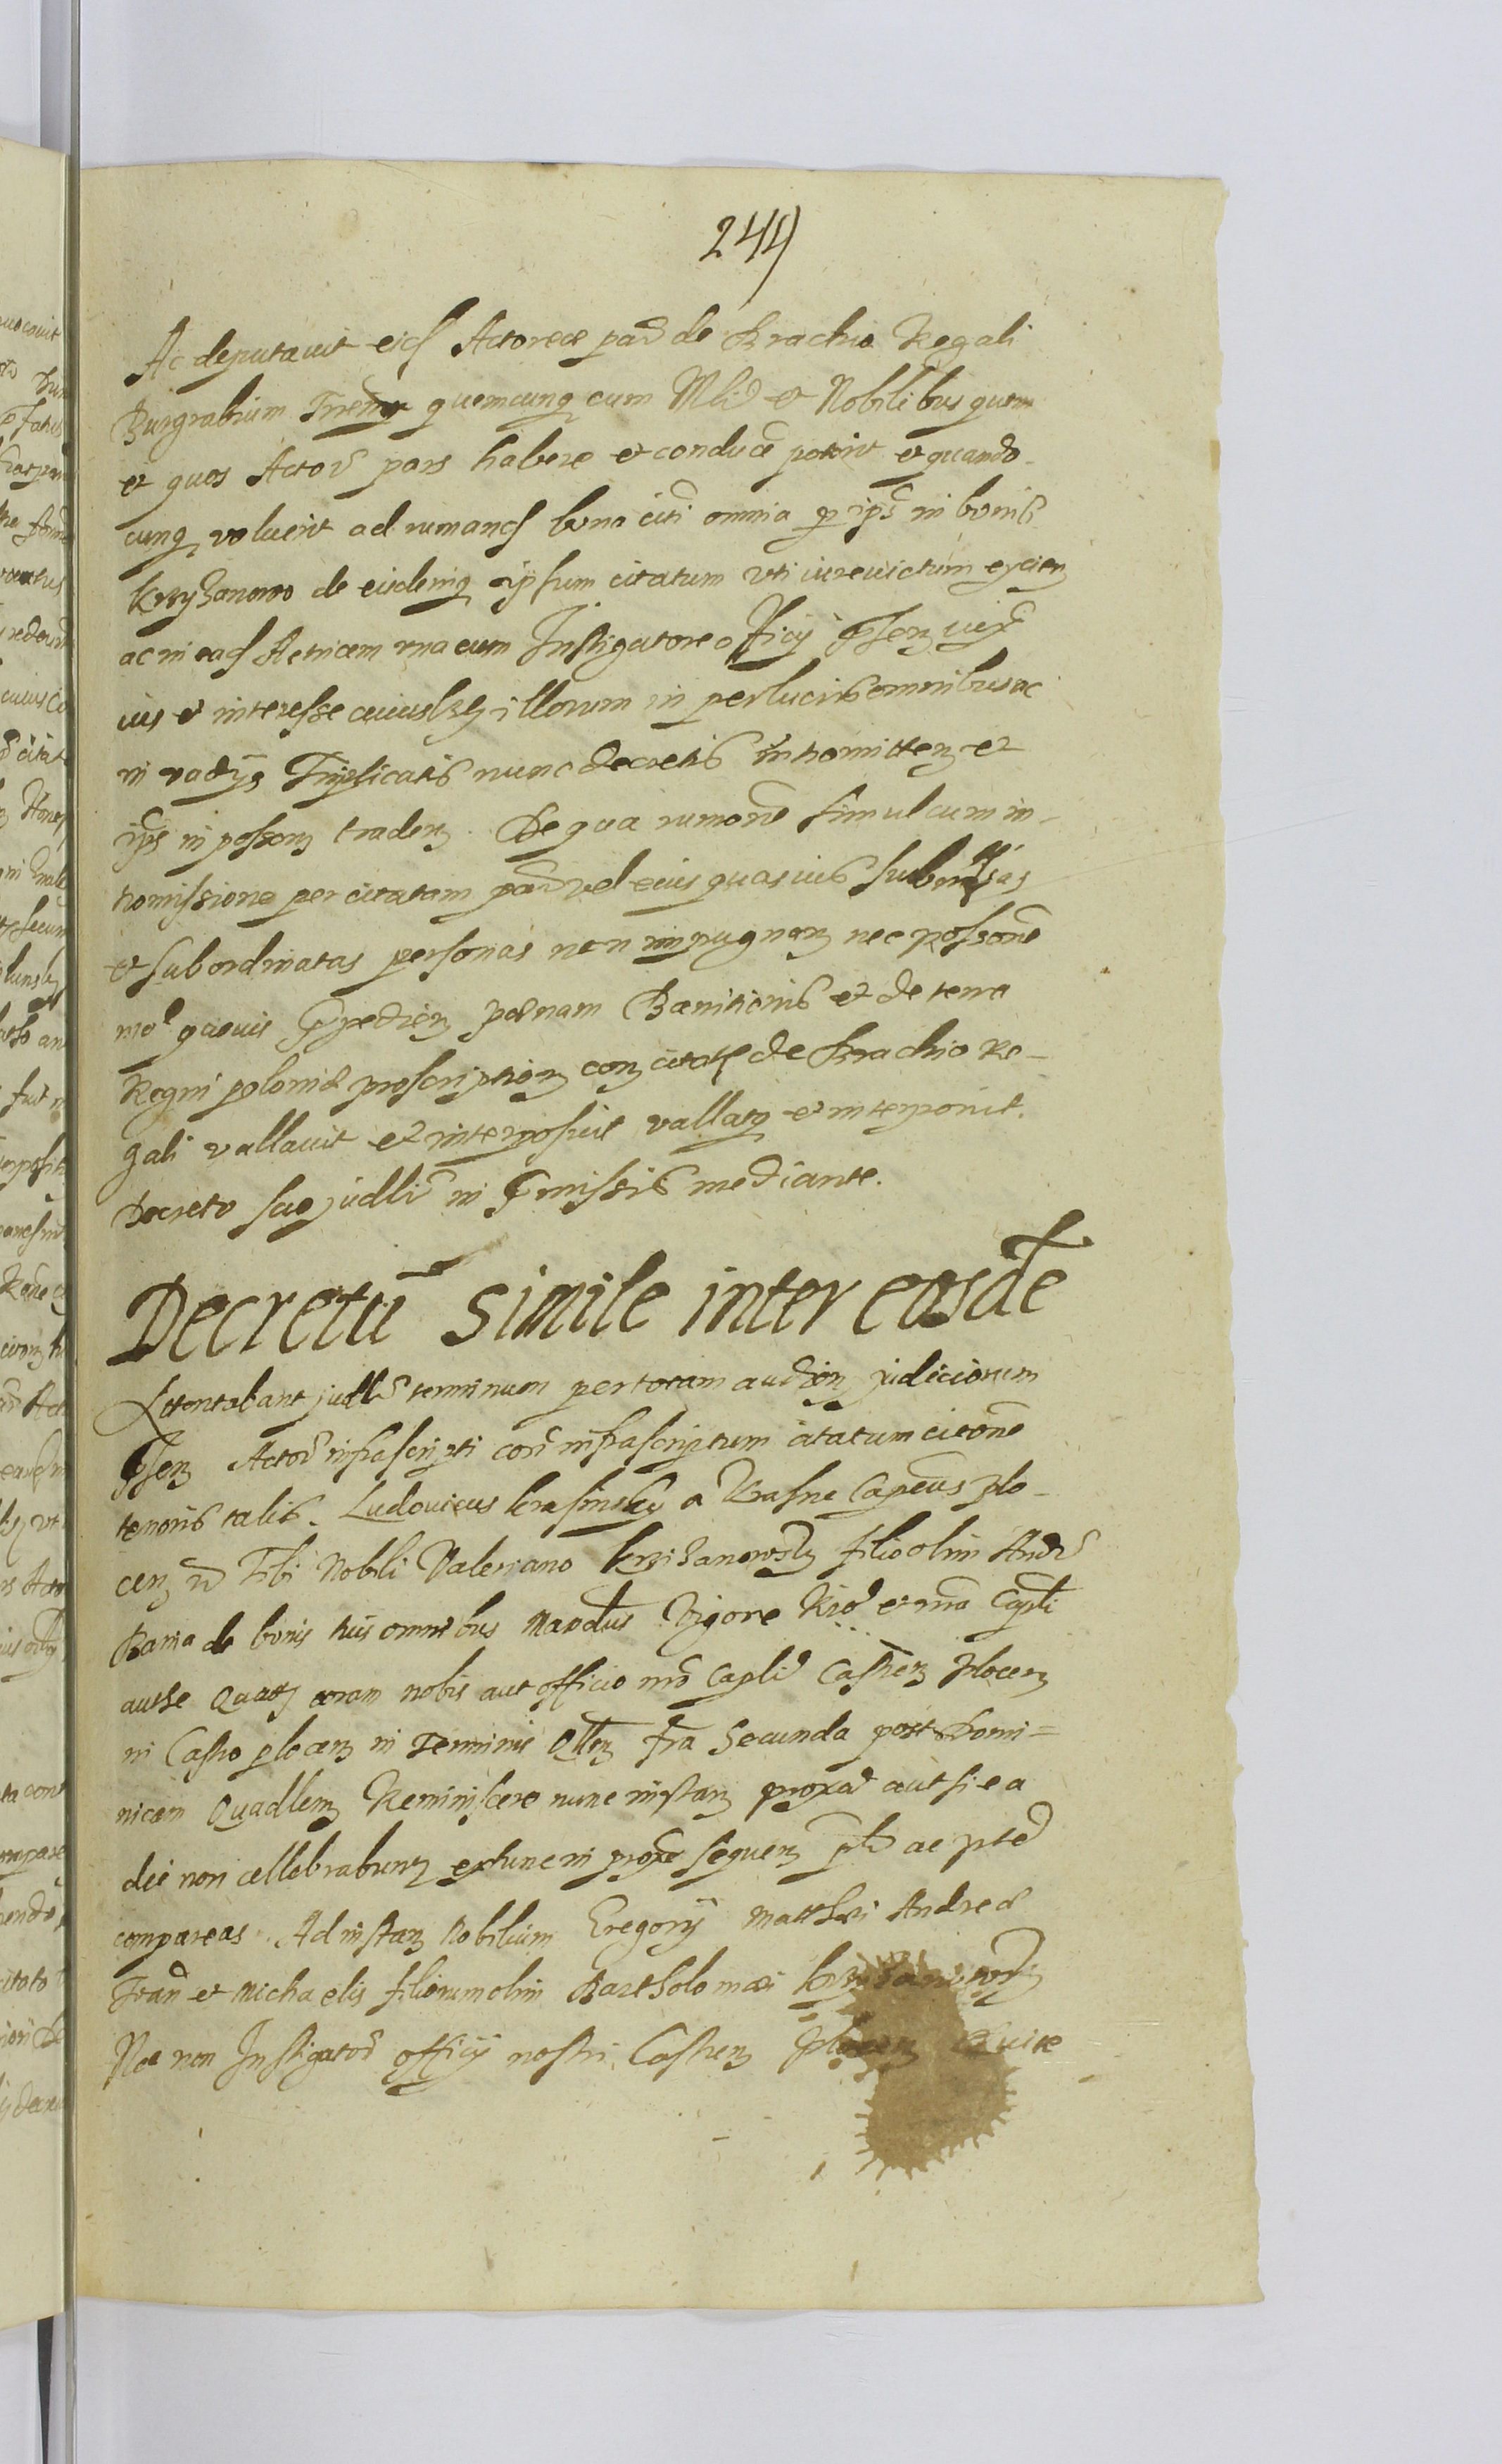 244
Ac deputavit eid Actoreæ par de Brachio Regali
Burgrabium Trrem quemcunq cum Mli et Nobilibus quem
et quos Actor pars habere et conduce poterit et quando
cunq voluerit ad rumand bona citi omnia p ips in bonis
Krzyzanowo de eisdemq ipsum citatum uti iurevictum eycien
ac in ead Actricem una cum Instigatore officij Psen
ius et interesse cuiuslbt illorum in perlucris omnibus ac
in vadijs Triplicatis nunc decretis intromitten et
ips in posson traden. De qua rumone simul cum in-
tromissione per citatam par vel eius quasuis submissas
et subordinatas personas non impugnan nec possone
mo quouis Impedien pænam Banitionis et de terra
Regni poloniæ proscription con citat de Brachio Re-
gali vallavit et interposuit vallatq et interponit.
Decreto suo judli in Pmissis mediante.
Decretu simile inter easde
Attentabant judle terminum per totam audien judiciorum
Psen Actor infrascripti con infrascriptum citatum citone
tenoris talis. Ludovicus krasinsky a Krasne Capneus plo-
cen Tibi Nobili Valeriano krzizanowsky filio olim Andr
Bania de bonis tuis omnibus Mandus Vigore
authe Quatz coram nobis aut officio nro Capli Castren Plocen
in Castro plocen in Terminis Qllen fra Secunda post Domi=
nicam Quadlem Reminiscere nunc instan proxa aut si ea
die non cellebrabunt extunc in proxe sequen plr ac pte
compareas. Ad instan Nobilium Gregorij Matthæi Andreæ
Joan et Michaelis filiorum olim Bartholomæi krzizanowsky
Nec non Instigator officij nostri Castren Plocen Quite